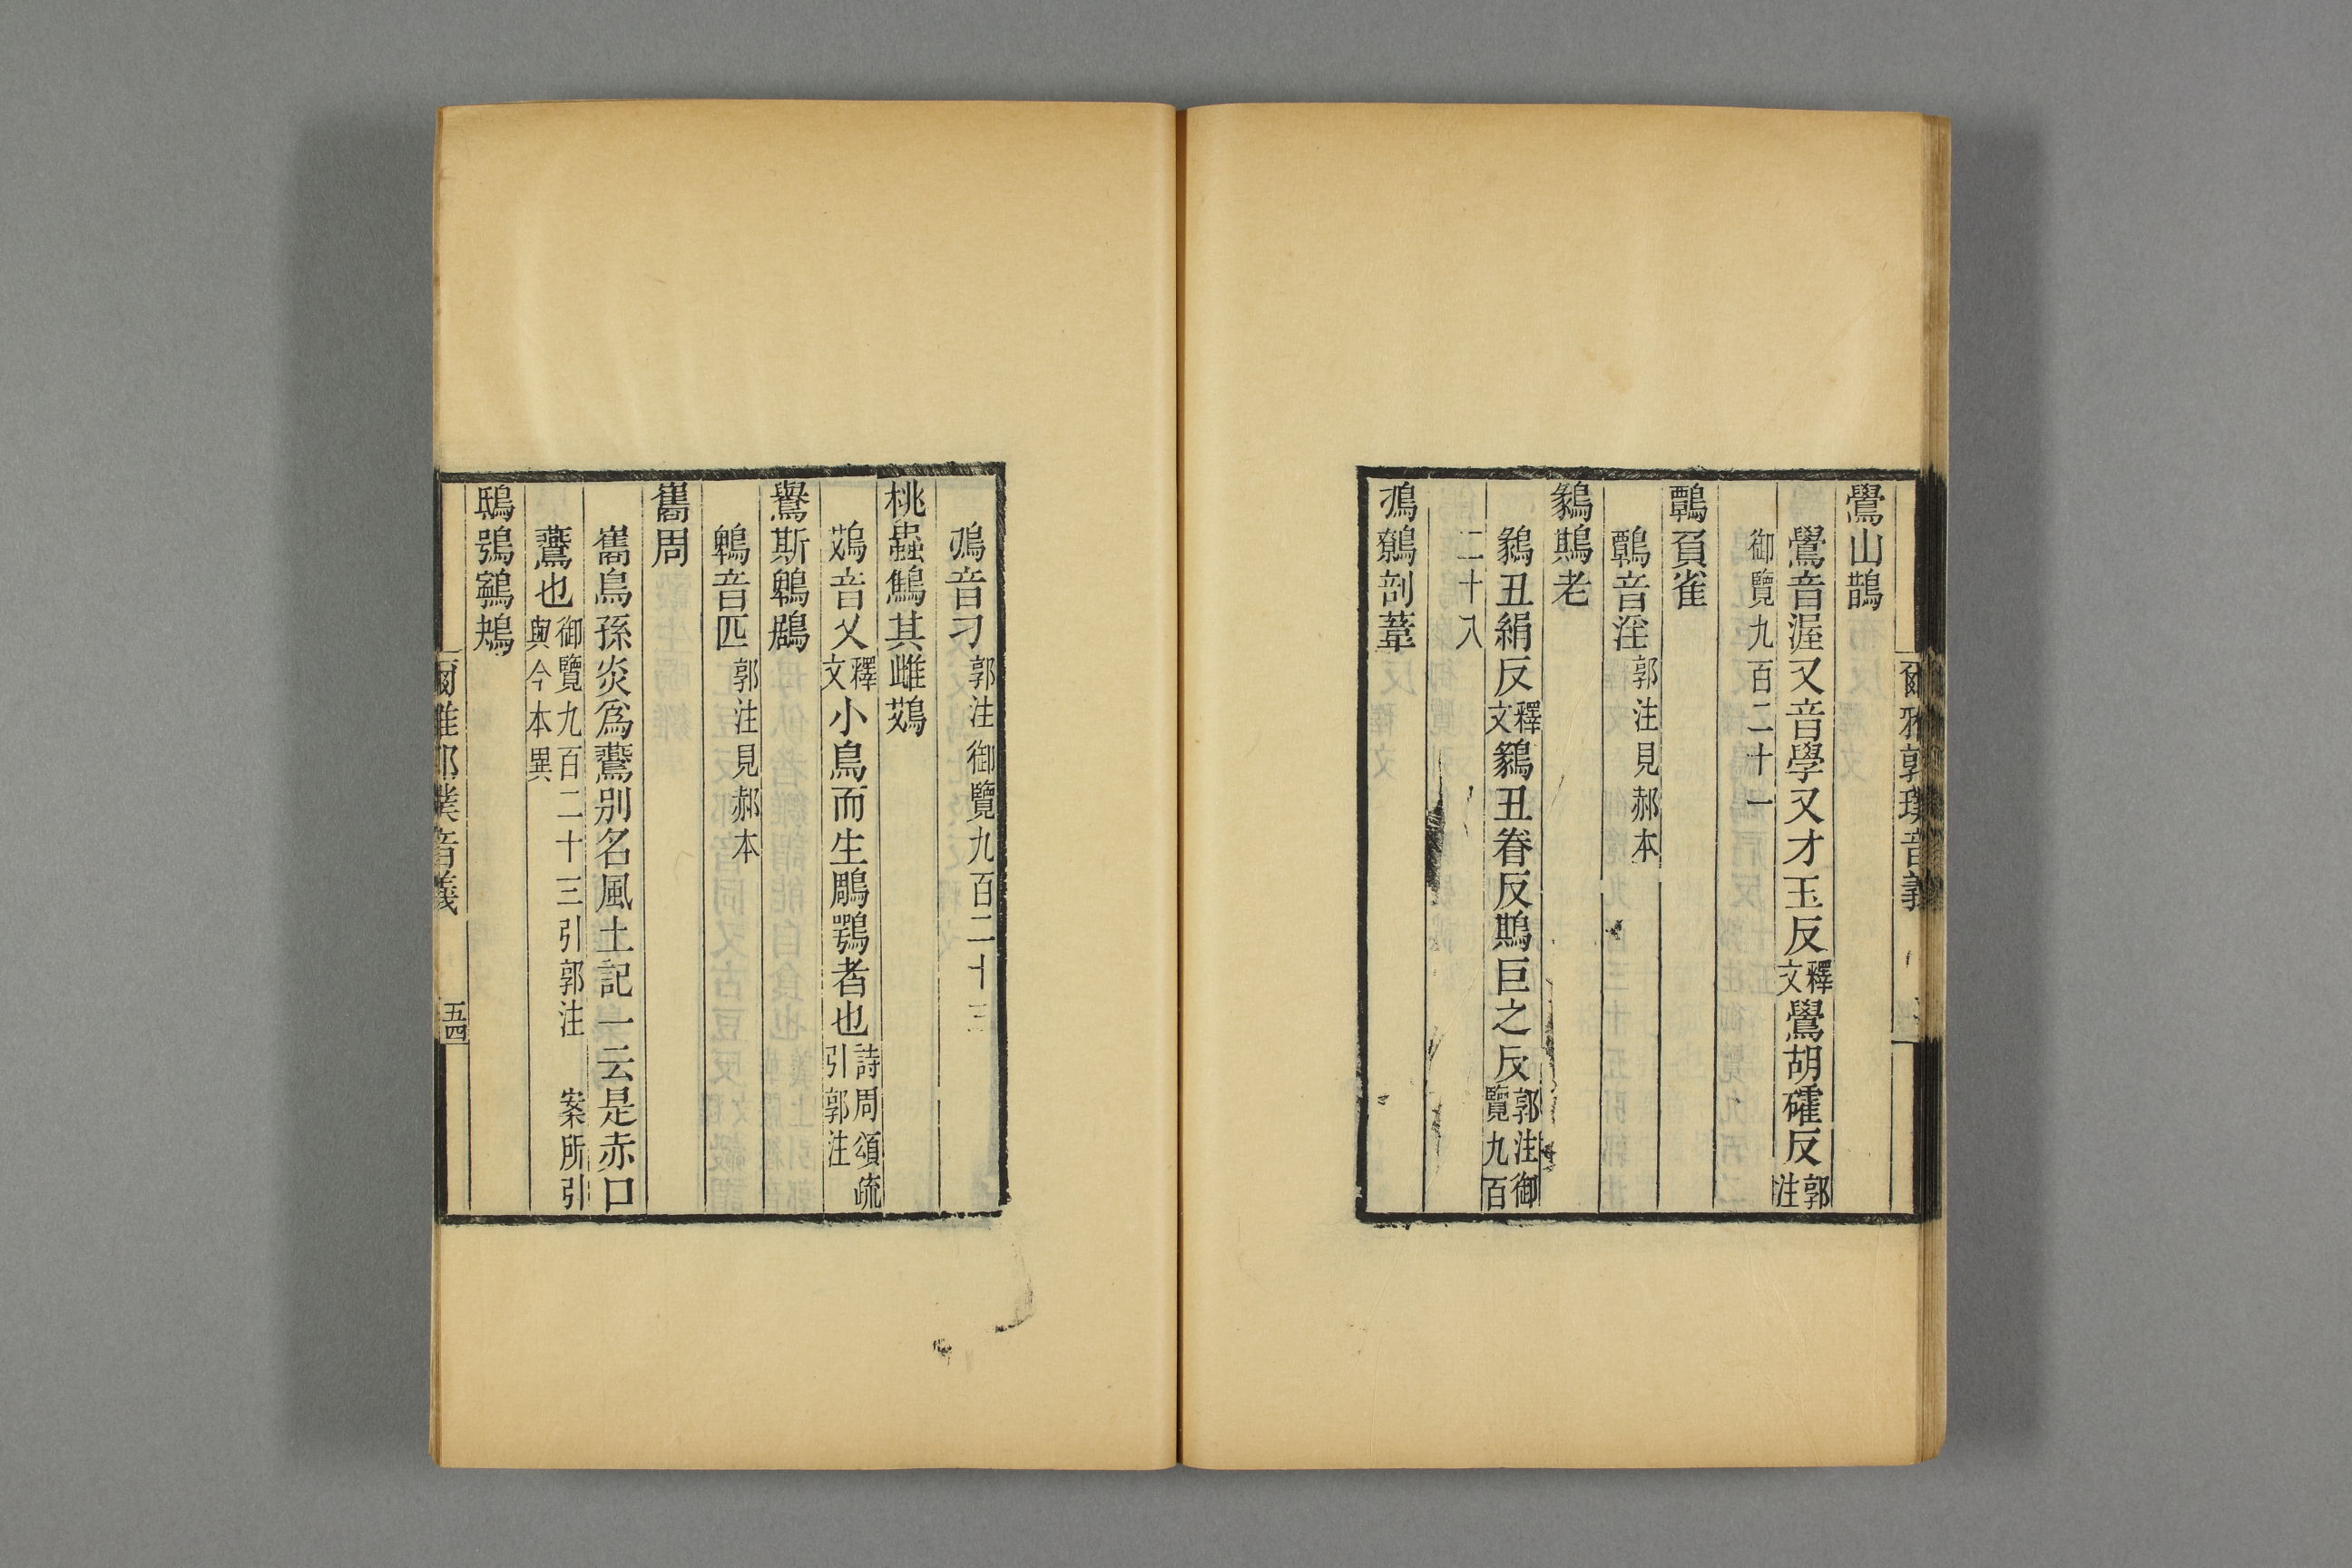 爾雅郭璞音義
鷽山鵲
鷽音渥又音學又才玉反釋文鷽胡㩁反郭注
御覽九百二十一
鷣負雀
鷣音淫郭注見郝本
鶨䳢老
鶨丑絹反釋文鶨丑眷反䳢巨之反郭注御覽九百
二十八
鳭鷯剖葦
鳭音刁郭注御覽九百二十三
桃蟲鷦其雌鴱
鴱音乂釋文小鳥而生鵰鶚者也詩周頌疏引郭注
鸒斯鵯鶋
鵯音匹郭注見郝本
巂周
巂鳥孫炎為鷰別名風土記一云是赤口
鷰也御覽九百二十三引郭注 案所引與今本異
鴟鴞鸋鴂
爾雅郭璞音義
五四